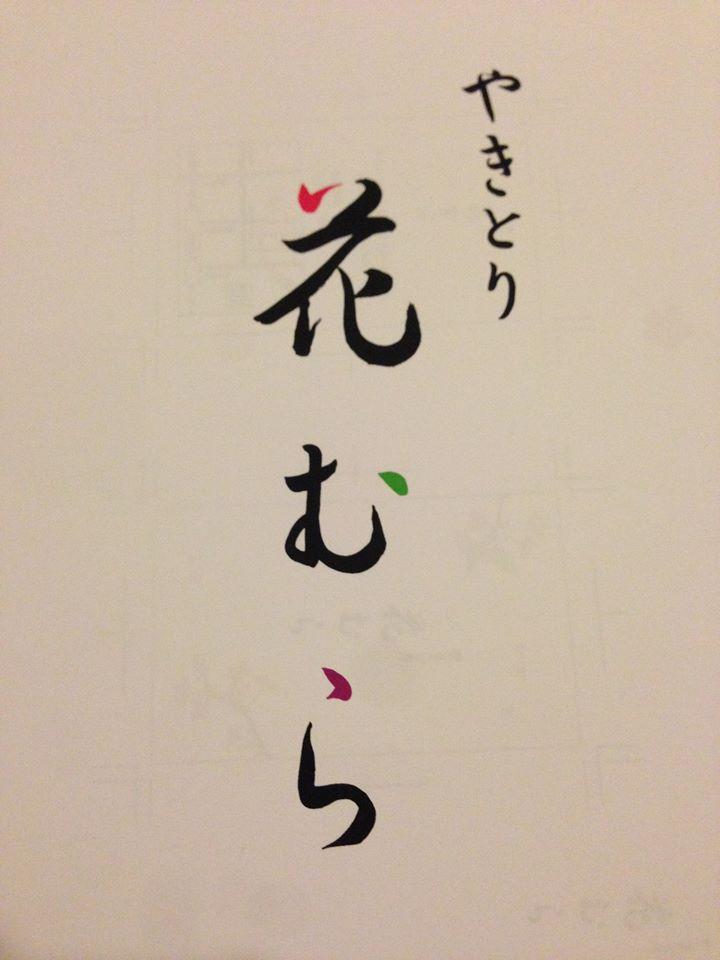 やきとり
花むら